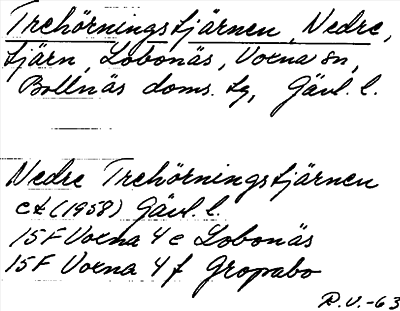 Trehörningstjärnen, Nedre,
tjärn, Lobonäs, Voxna sn,
Bollnäs doms. tg, Gävl. l.
Nedre Trehörningstjärnen
ek (1958) Gävl. l.
15F Voxna 4 e Lobonäs
15F Voxna 4 f Gropabo
R.V.-63